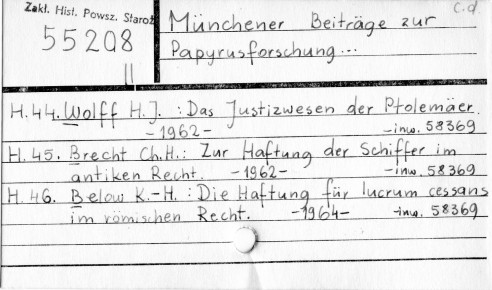 Zakł. Hist. Powsz. Staroż
55208
c.d
Münchener Beiträge zur
Papyrusforschung...
H.44. Wolff H.J. : Das Justizwesen der Ptolemäer.
-1962- -inw. 58369
H.45. Brecht Ch.H.: Zur Haftung der Schiffer im
antiken Recht. -1962- -inw. 58369
H.46. Below K.-H. : Die Haftung für lucrum cessans
im römischen Recht. -1964- -inw. 58369